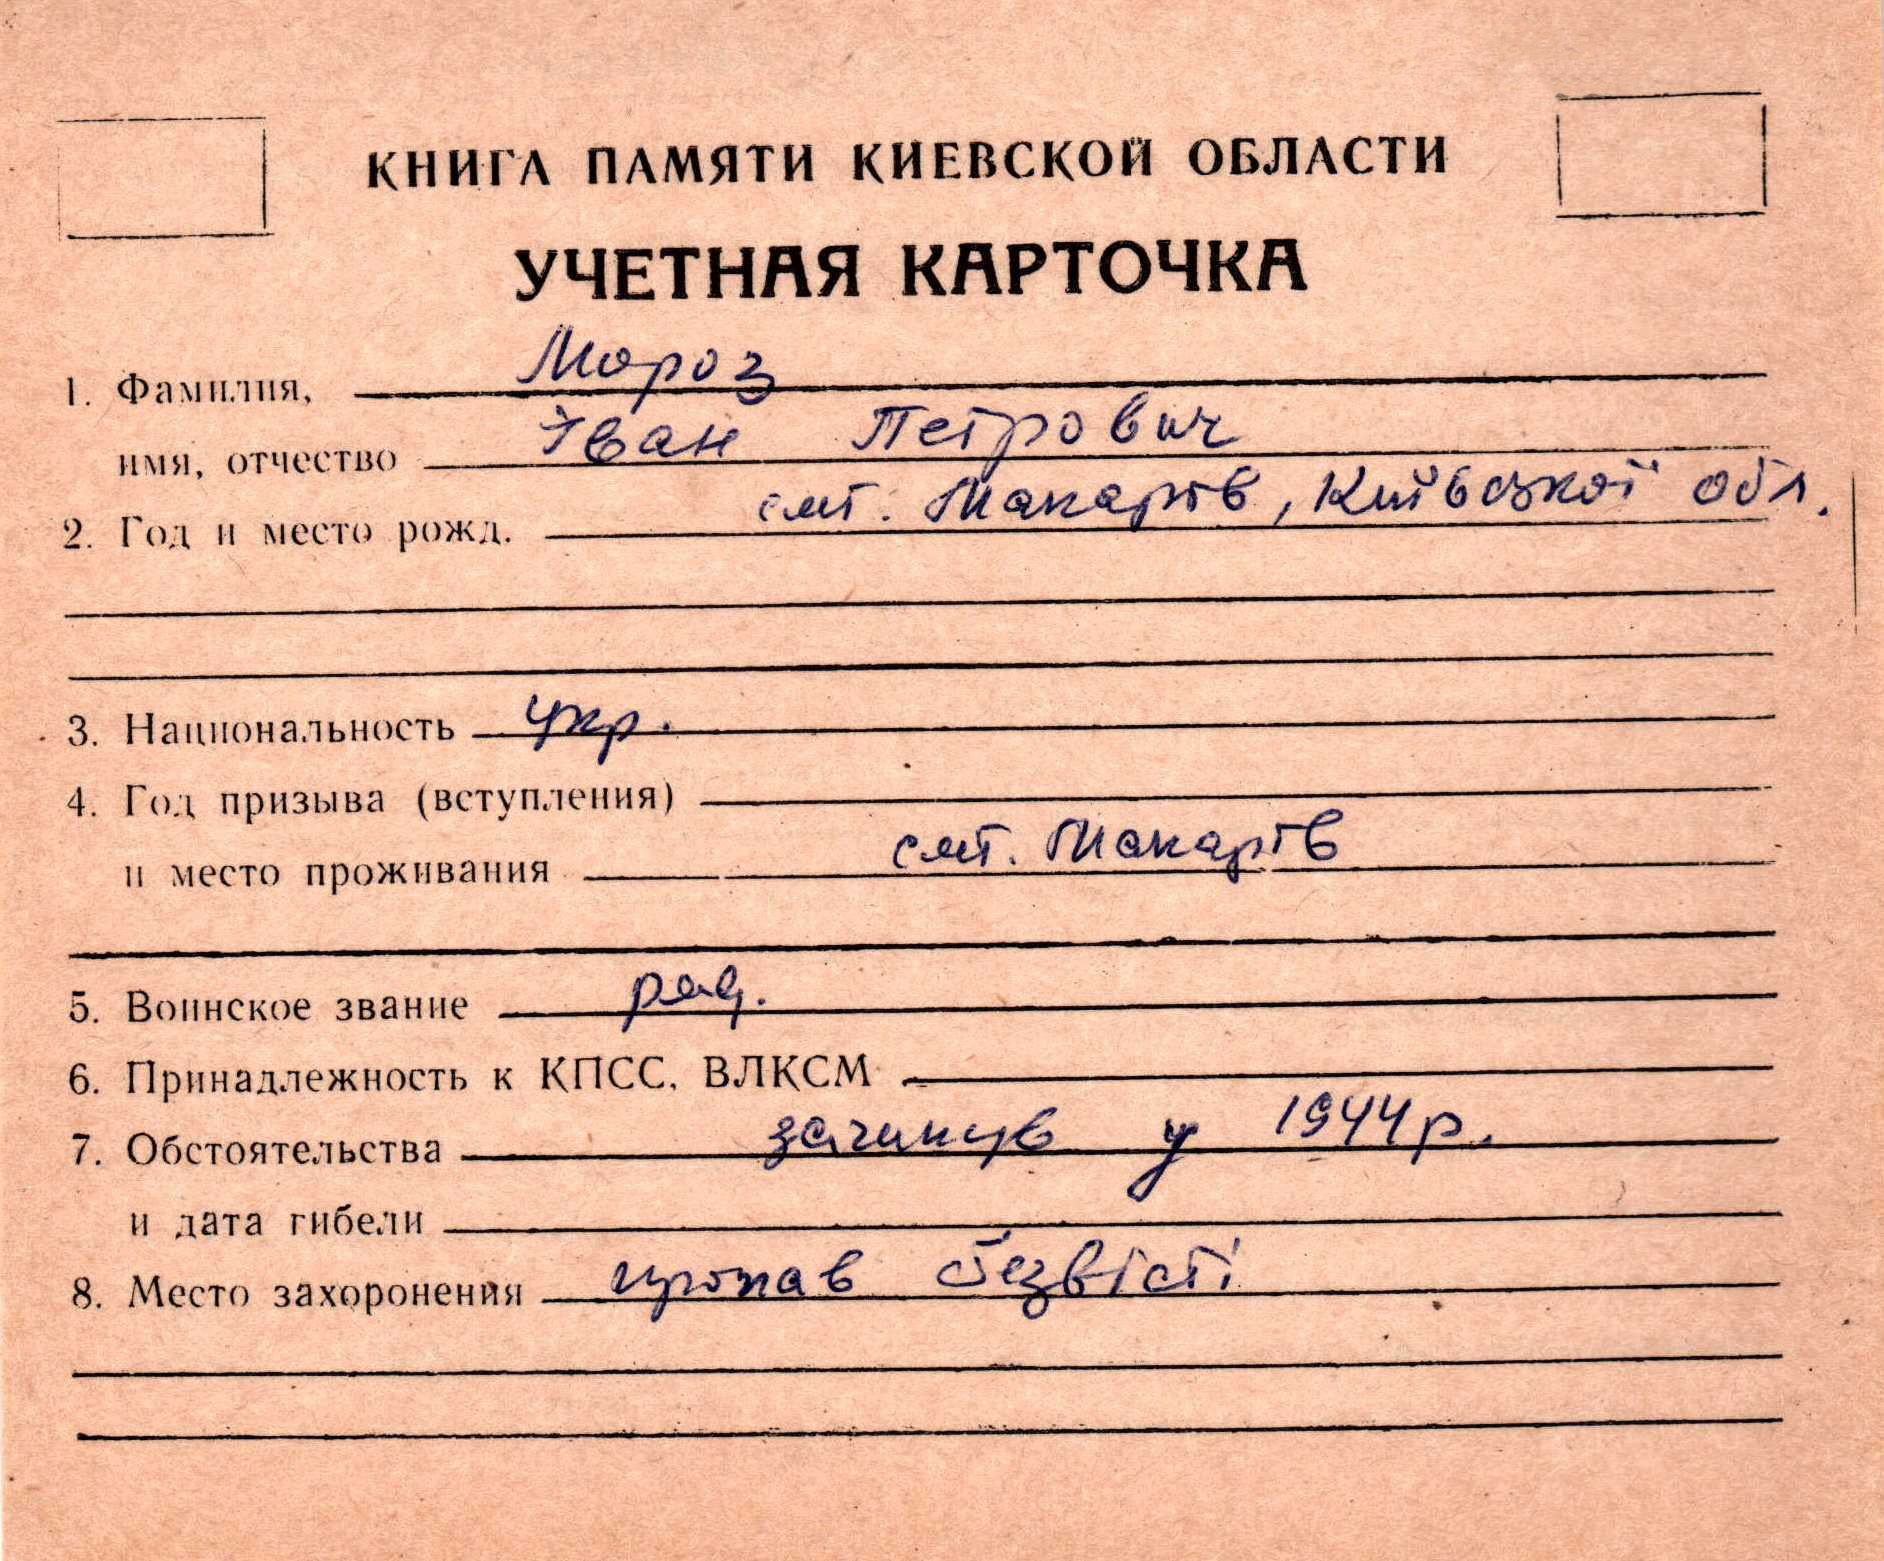 КНИГА ПАМЯТИ КИЕВСКОЙ ОБЛАСТИ
УЧЕТНАЯ КАРТОЧКА
1. Фамилия, Мороз
имя, отчество Іван Петрович
2. Год и место рожд. смт. Макарів, Київської обл.
3. Национальность укр.
4. Год призыва (вступления)
и место проживания смт. Макарів
5. Воинское звание ряд.
6. Принадлежность к КПСС, ВЛКСМ
7. Обстоятельства загинув у 1944 р.
и дата гибели
8. Место захоронения пропав безвісті